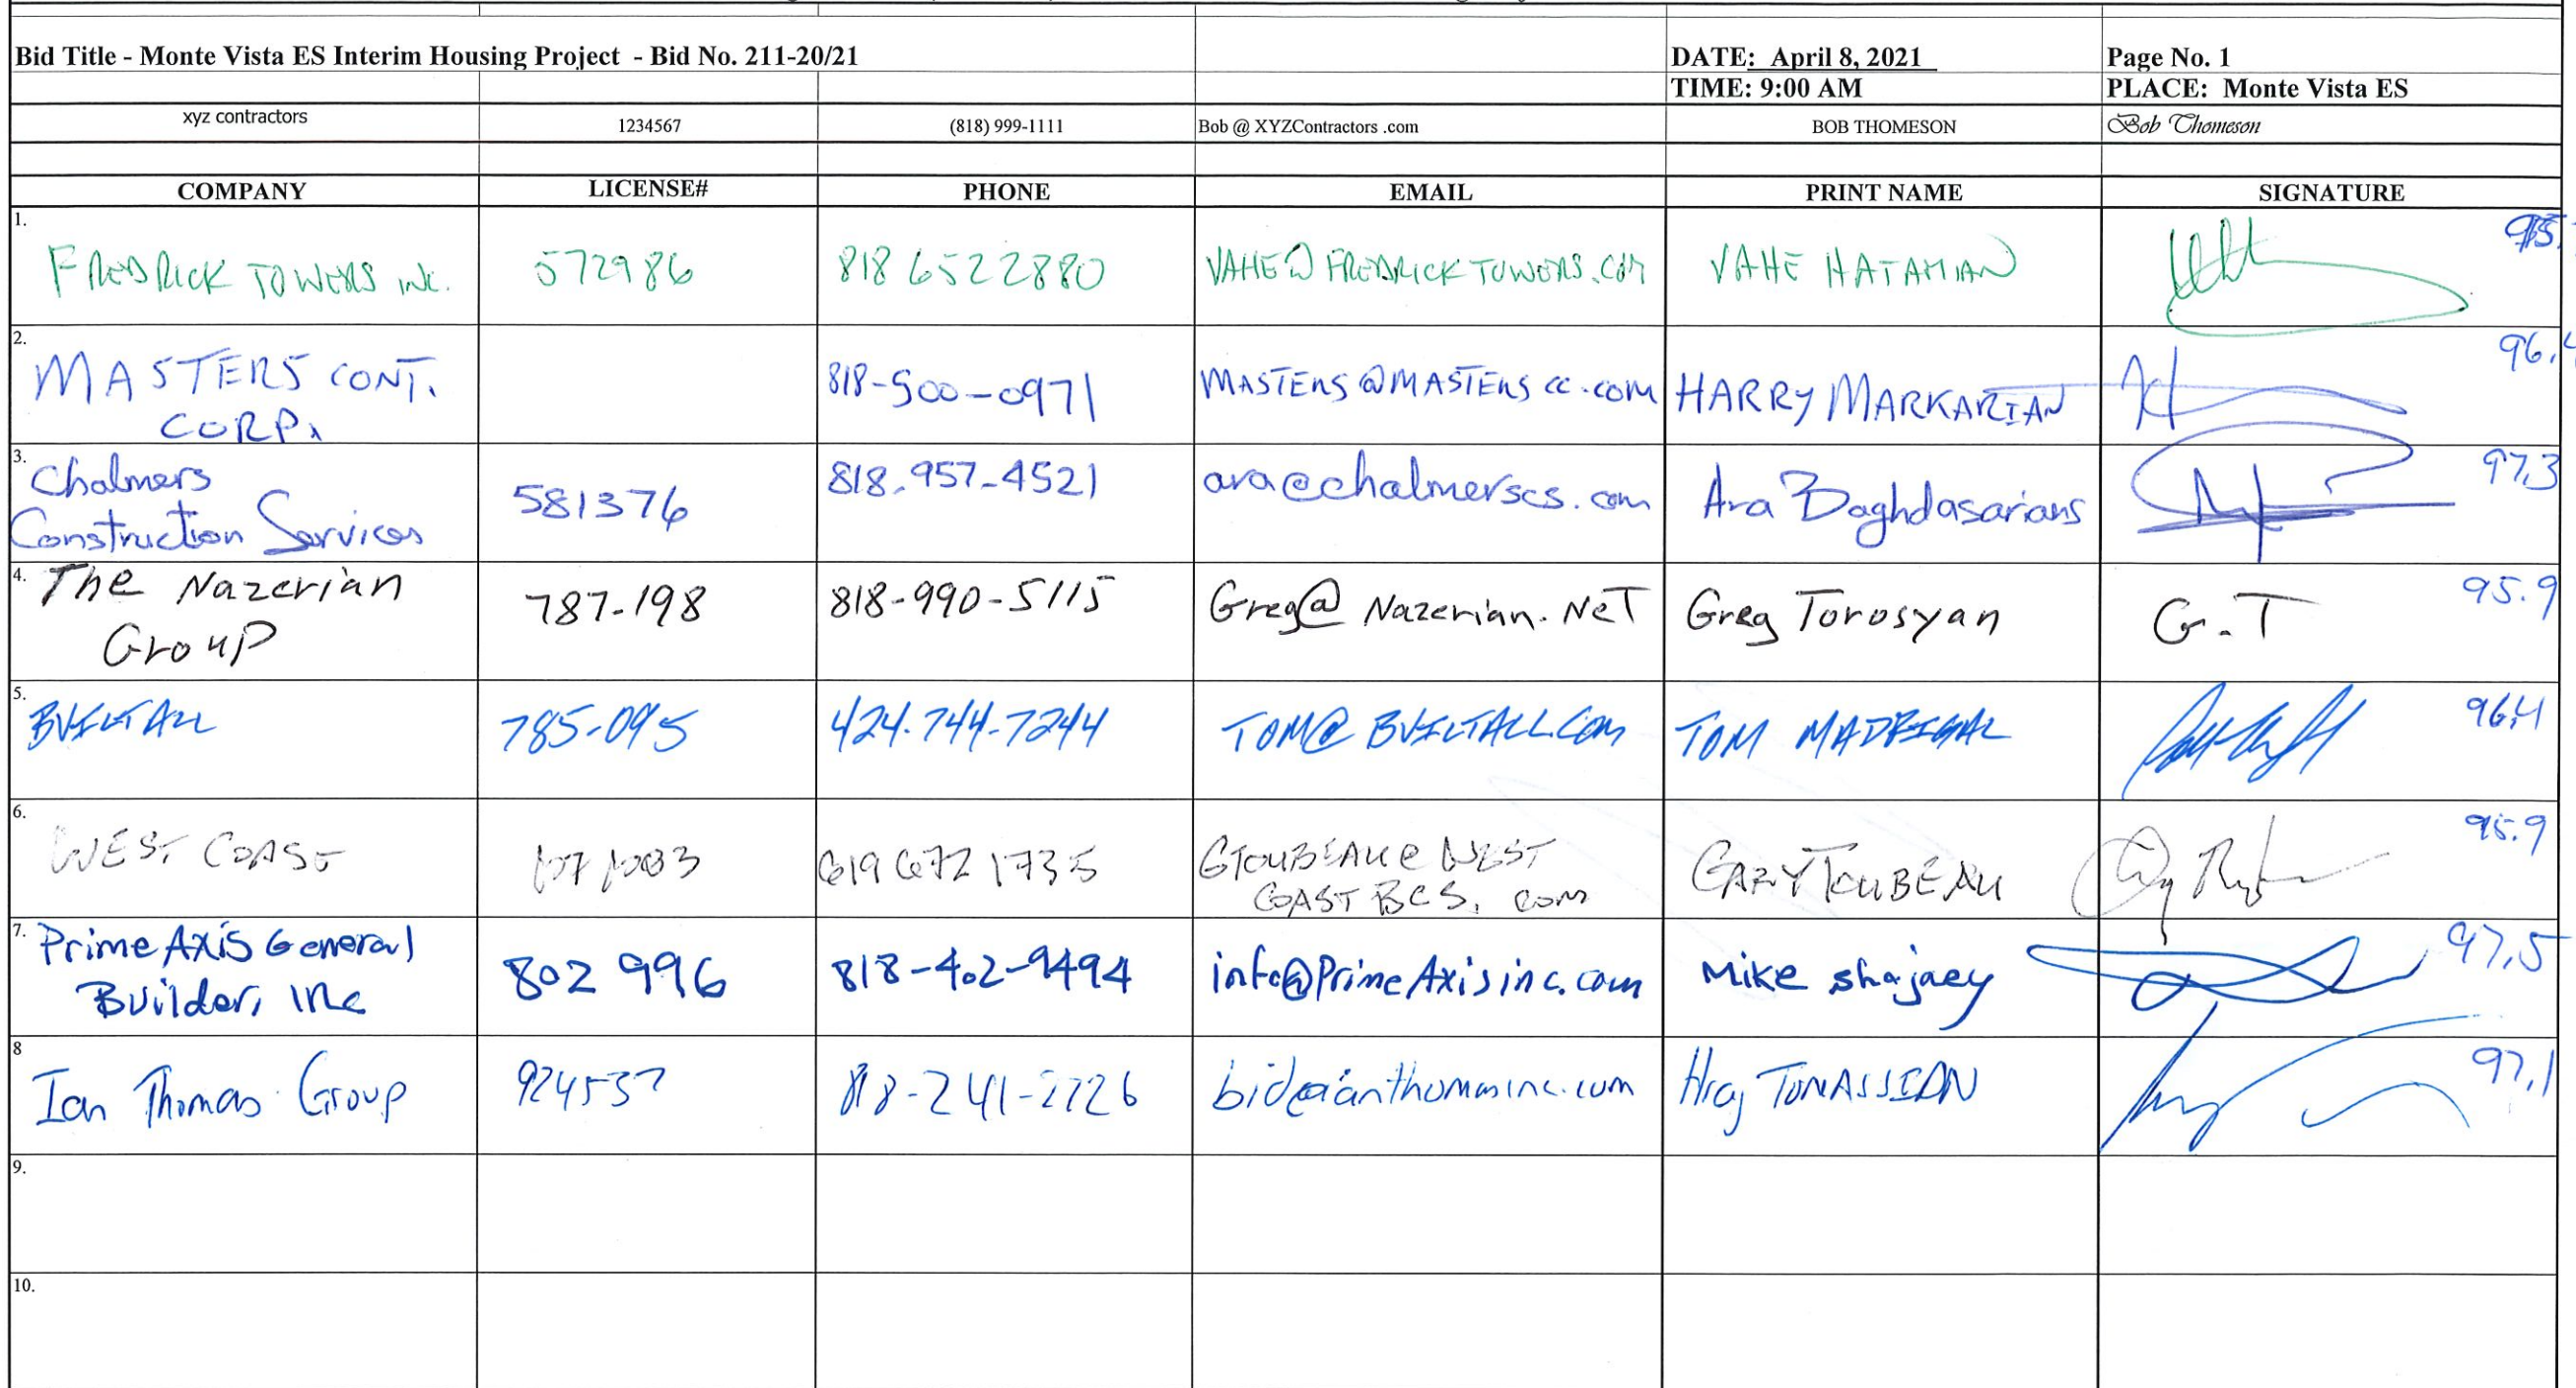 Bid Title - Monte Vista ES Interim Housing Project - Bid No. 211-20/21 DATE: April 8, 2021 Page No. 1
TIME: 9:00 AM PLACE: Monte Vista ES
xyz contractors 1234567 (818) 999-1111 Bob @ XYZContractors .com BOB THOMESON Bob Thomeson
COMPANY LICENSE# PHONE EMAIL PRINT NAME SIGNATURE
1. FREDRICK TOWERS INC. 572986 818 6522880 VAHE@FREDRICKTOWERS.COM VAHE HATAMIAN
2. MASTERS CONT. 818-500-0971 MASTERS@MASTERSCC.COM HARRY MARKARIAN 96.4
CORP.
3. Chalmers 581376 818.957-4521 ara@chalmerscs.com Ara Baghdasarians 97.3
Construction Services
4. The Nazerian 787-198 818-990-5115 Greg@Nazerian.NeT Greg Torosyan G.T 95.9
GrouP
5. BUILTALL 785-095 424.744-7244 TOM@BUILTALL.COM TOM MADRIGAL 96.4
6. WEST COAST 619 672 1735 GTOUBEAU@WEST GARY TOUBEAU 95.9
COASTBCS.com
7. Prime Axis General 802 996 818-402-9494 info@PrimeAxisinc.com Mike shajaey 97.5
Builder, Inc
8 Ian Thomas Group 924537 818-241-2726 bid@ianthomasinc.com Hraj TOMASSIAN 97.1
9.
10.